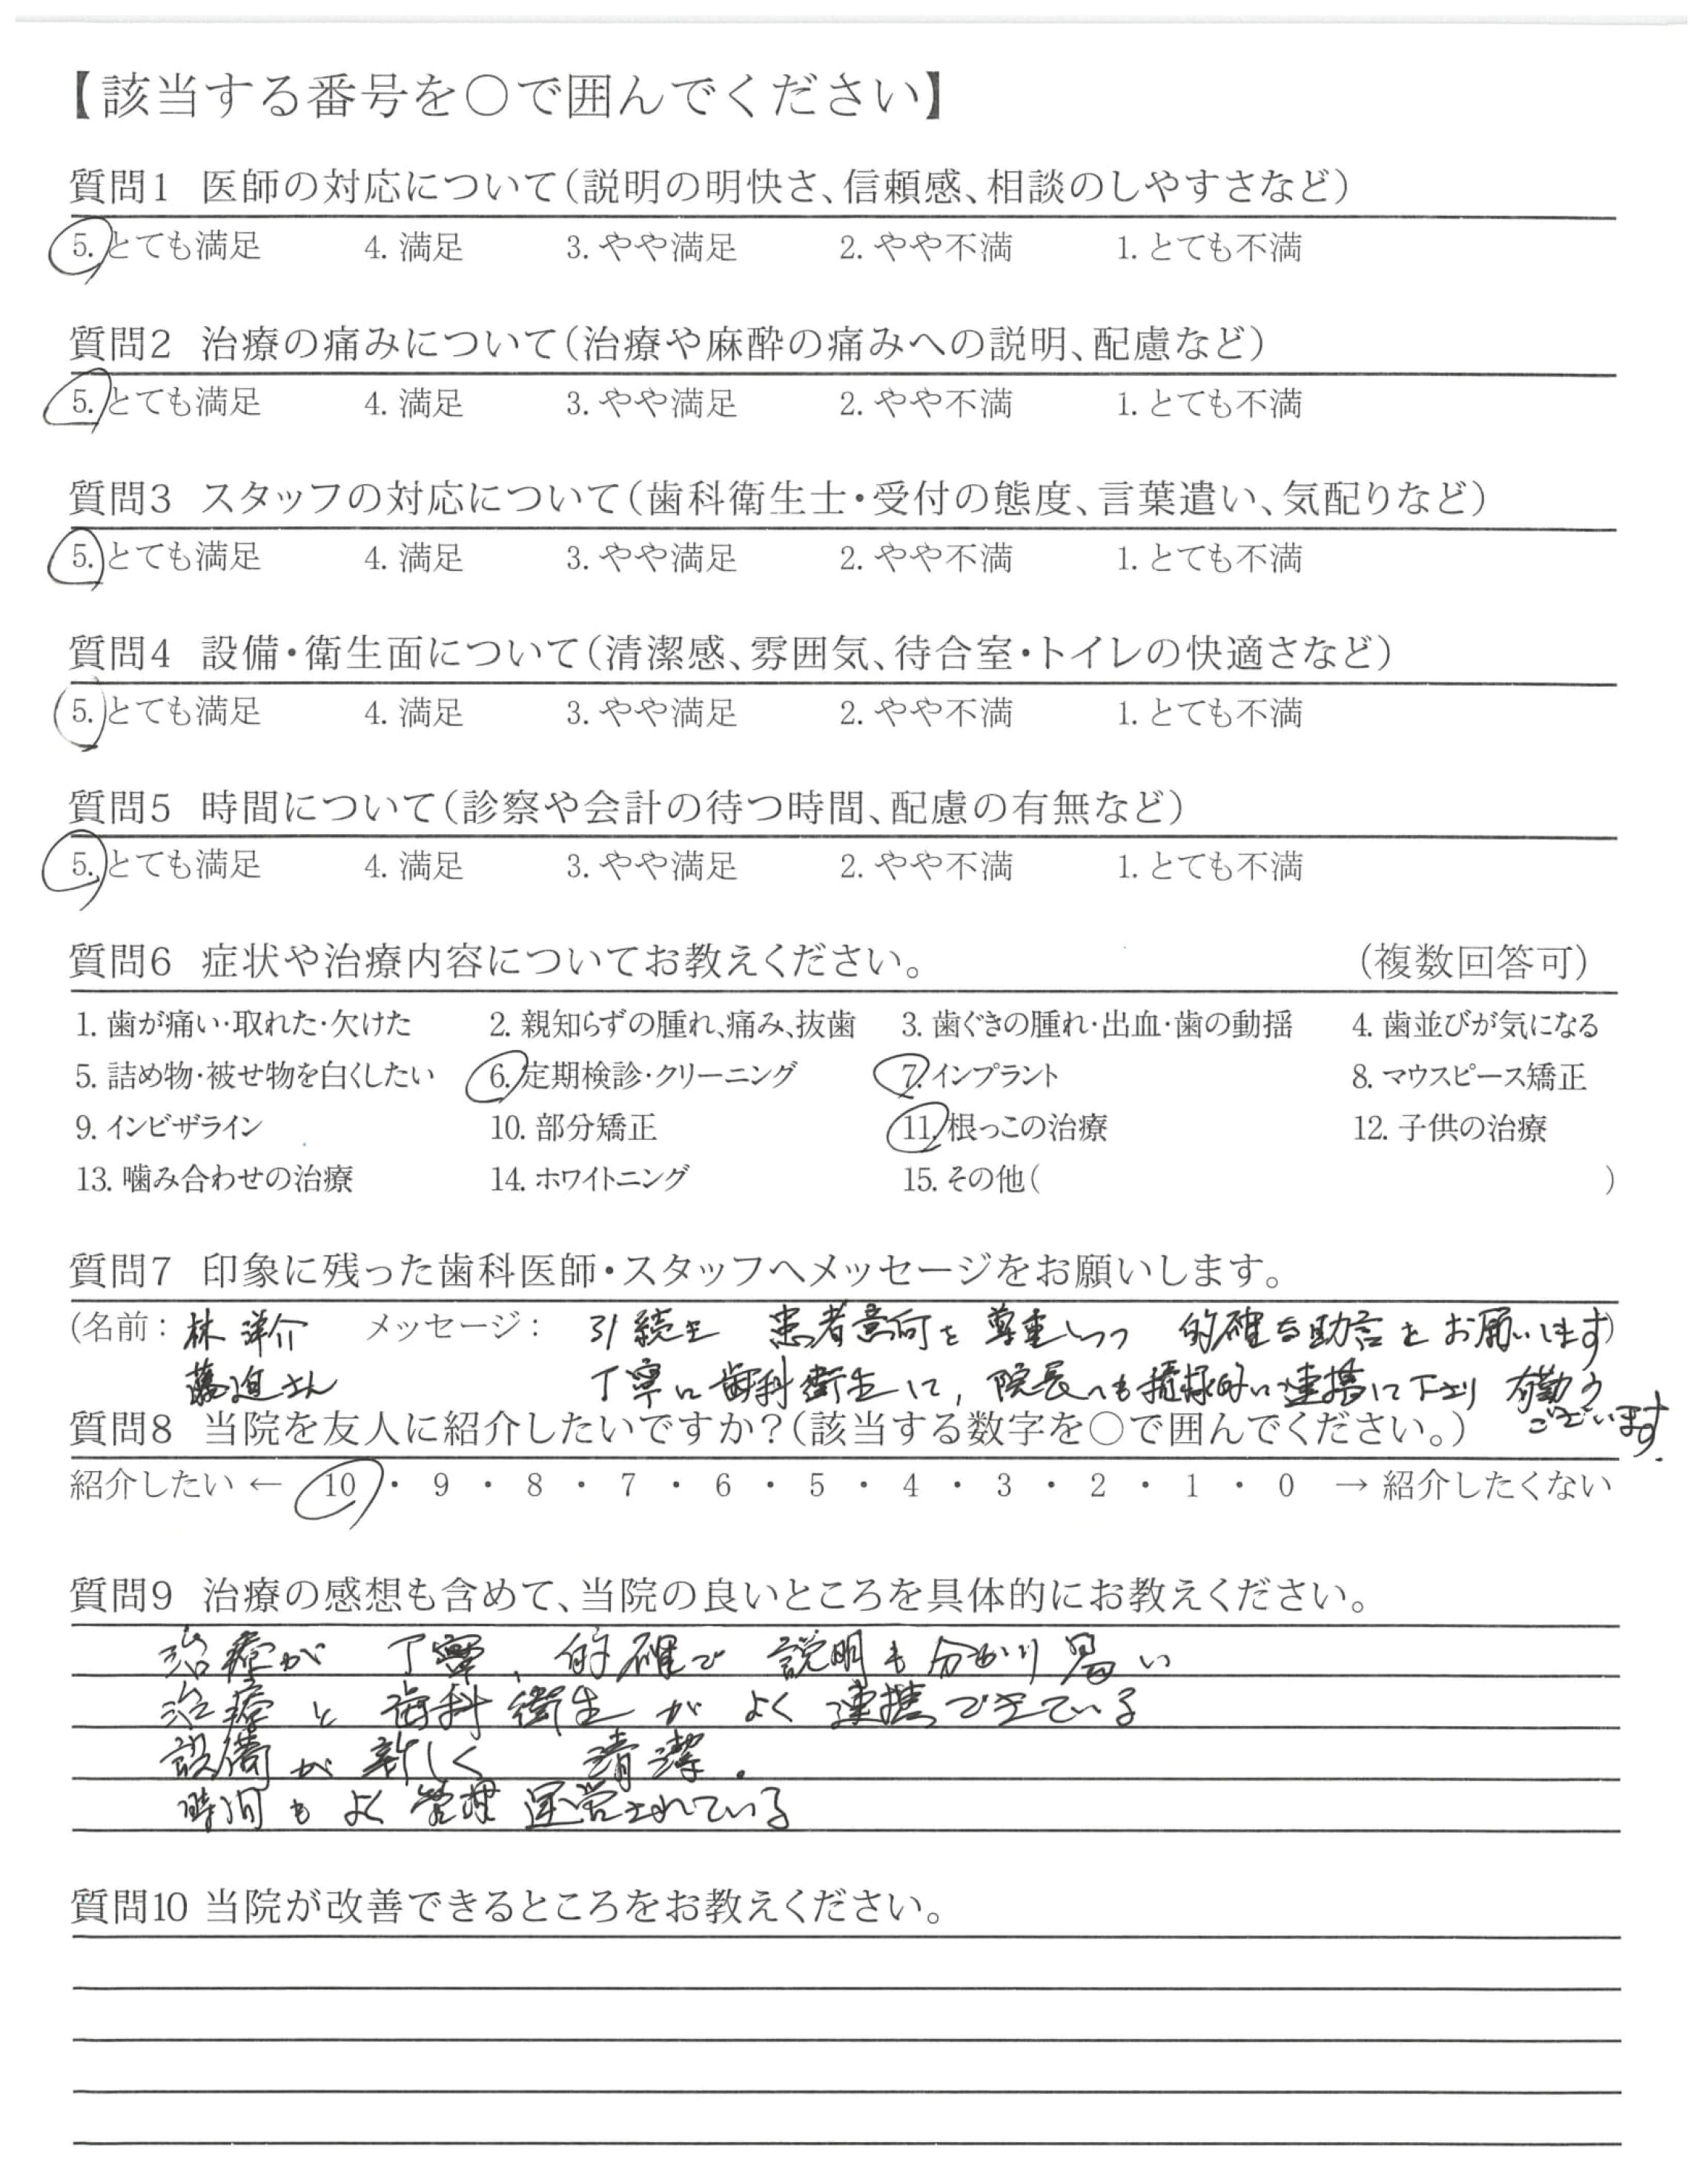 【該当する番号を○で囲んでください】
質問1 医師の対応について(説明の明快さ、信頼感、相談のしやすさなど)
5. とても満足 4. 満足 3. やや満足 2. やや不満 1. とても不満
質問2 治療の痛みについて(治療や麻酔の痛みへの説明、配慮など)
5. とても満足 4. 満足 3. やや満足 2. やや不満 1. とても不満
質問3 スタッフの対応について(歯科衛生士・受付の態度、言葉遣い、気配りなど)
5. とても満足 4. 満足 3. やや満足 2. やや不満 1. とても不満
質問4 設備・衛生面について(清潔感、雰囲気、待合室・トイレの快適さなど)
5. とても満足 4. 満足 3. やや満足 2. やや不満 1. とても不満
質問5 時間について(診察や会計の待つ時間、配慮の有無など)
5. とても満足 4. 満足 3. やや満足 2. やや不満 1. とても不満
質問6 症状や治療内容についてお教えください。 (複数回答可)
1. 歯が痛い・取れた・欠けた 2. 親知らずの腫れ、痛み、抜歯 3. 歯ぐきの腫れ・出血・歯の動揺 4. 歯並びが気になる
5. 詰め物・被せ物を白くしたい 6. 定期検診・クリーニング 7. インプラント 8. マウスピース矯正
9. インビザライン 10. 部分矯正 11. 根っこの治療 12. 子供の治療
13. 噛み合わせの治療 14. ホワイトニング 15. その他( )
質問7 印象に残った歯科医師・スタッフへメッセージをお願いします。
(名前: 林 洋介 メッセージ: 引続き 患者意向を 尊重しつつ 的確な助言を お願いします)
さん 丁寧に歯科衛生して, 院長へも積極的に連携して下さり 有難う
ございます.
質問8 当院を友人に紹介したいですか?(該当する数字を○で囲んでください。)
紹介したい ← 10 ・ 9 ・ 8 ・ 7 ・ 6 ・ 5 ・ 4 ・ 3 ・ 2 ・ 1 ・ 0 → 紹介したくない
質問9 治療の感想も含めて、当院の良いところを具体的にお教えください。
治療が 丁寧, 的確で 説明も 分かり易い
治療と 歯科衛生が よく 連携できている
設備が 新しく 清潔.
時間も よく 管理 運営されている
質問10 当院が改善できるところをお教えください。